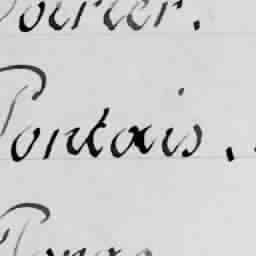 Poirier.
Pontais.